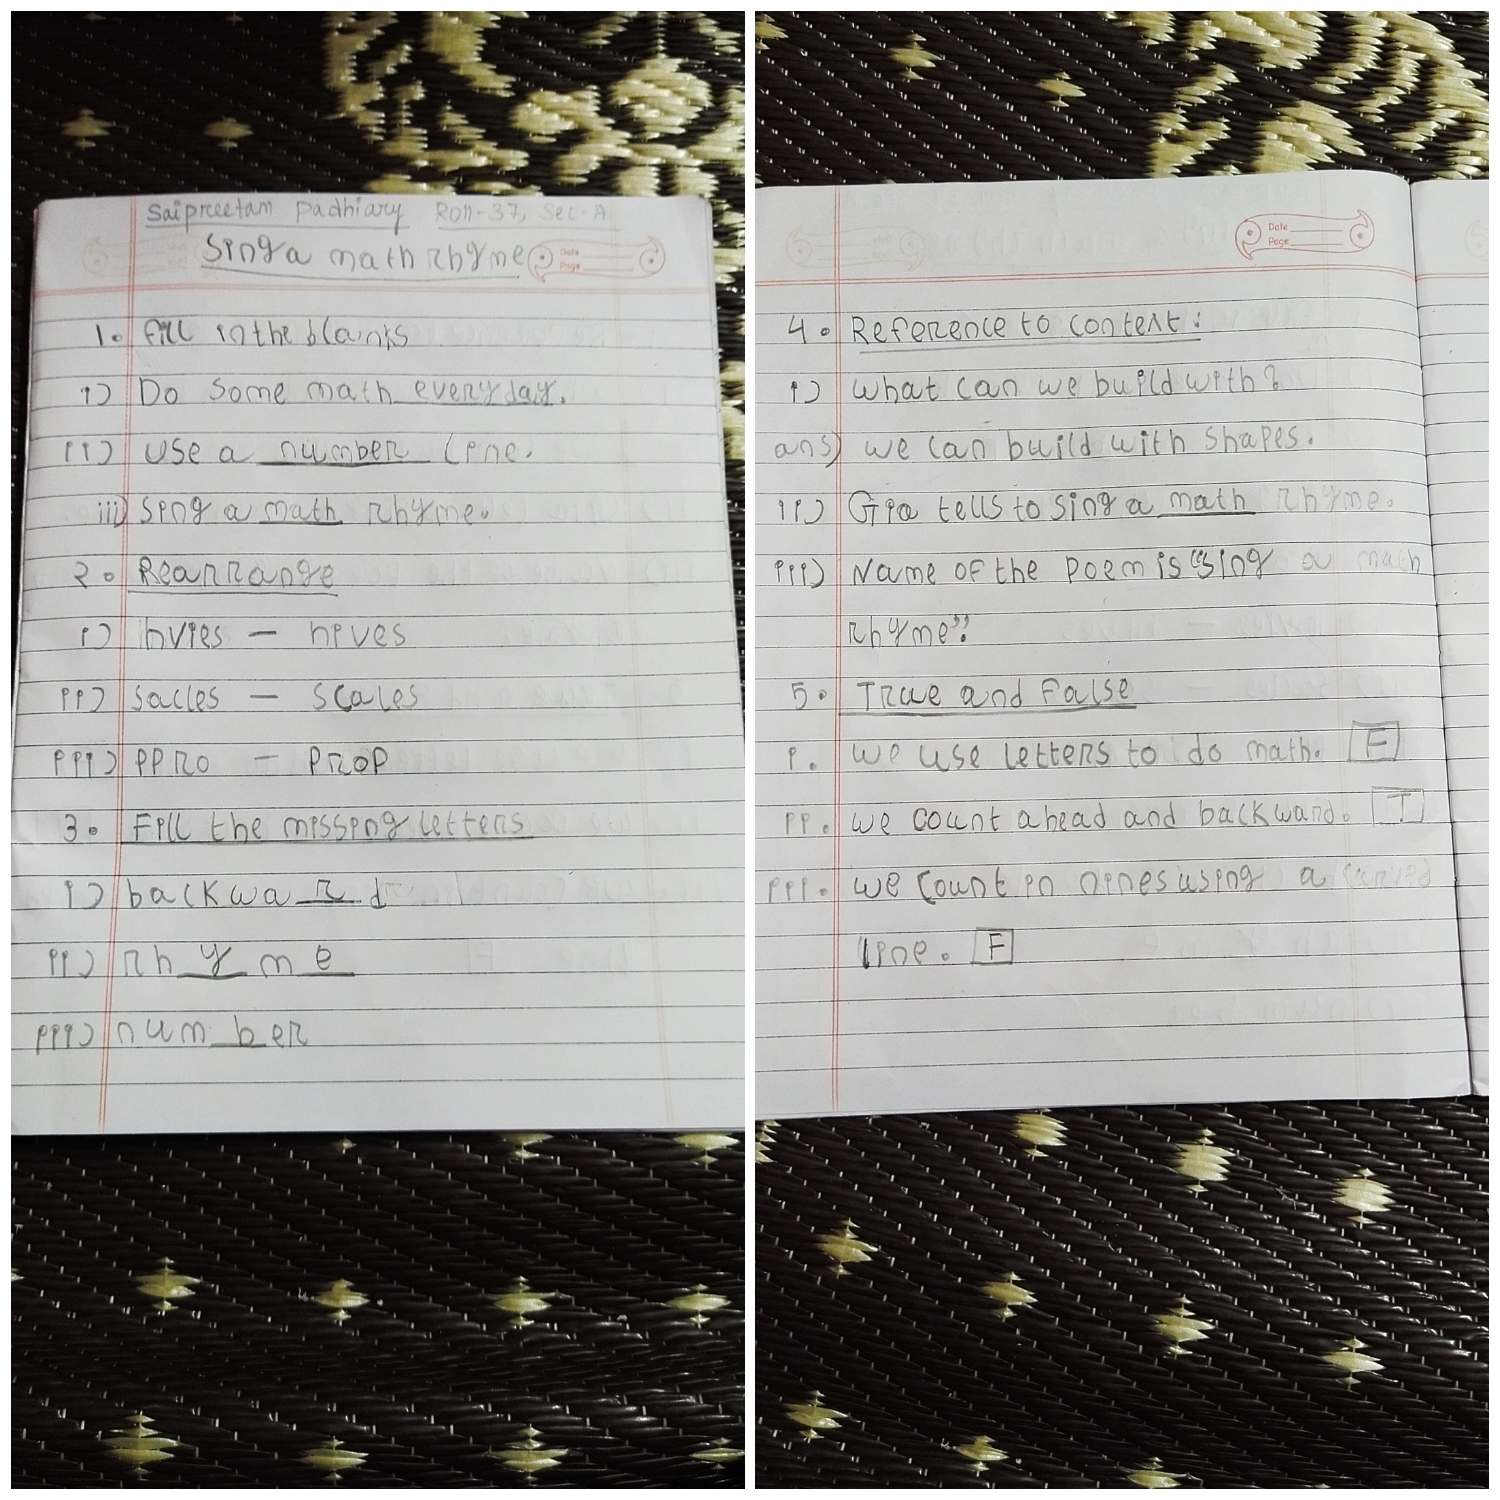 Saipreetam Padhiary Roll-37, Sec-A
Sing a math rhyme
Date
Page
1. Fill in the blanks
i) Do some math everyday.
ii) Use a number line.
iii) Sing a math rhyme.
2. Rearrange
i) hvies - hives
ii) sacles - scales
iii) ppro - prop
3. Fill the missing letters
i) backwa r d
ii) rh y m e
iii) num b er
Date
Page
4. Reference to context:
i) What can we build with?
ans) we can build with shapes.
ii) Gia tells to sing a math rhyme.
iii) Name of the poem is "Sing a math
rhyme".
5. True and False
i. we use letters to do math. F
ii. we count ahead and backward. T
iii. we count in nines using a curved
line. F